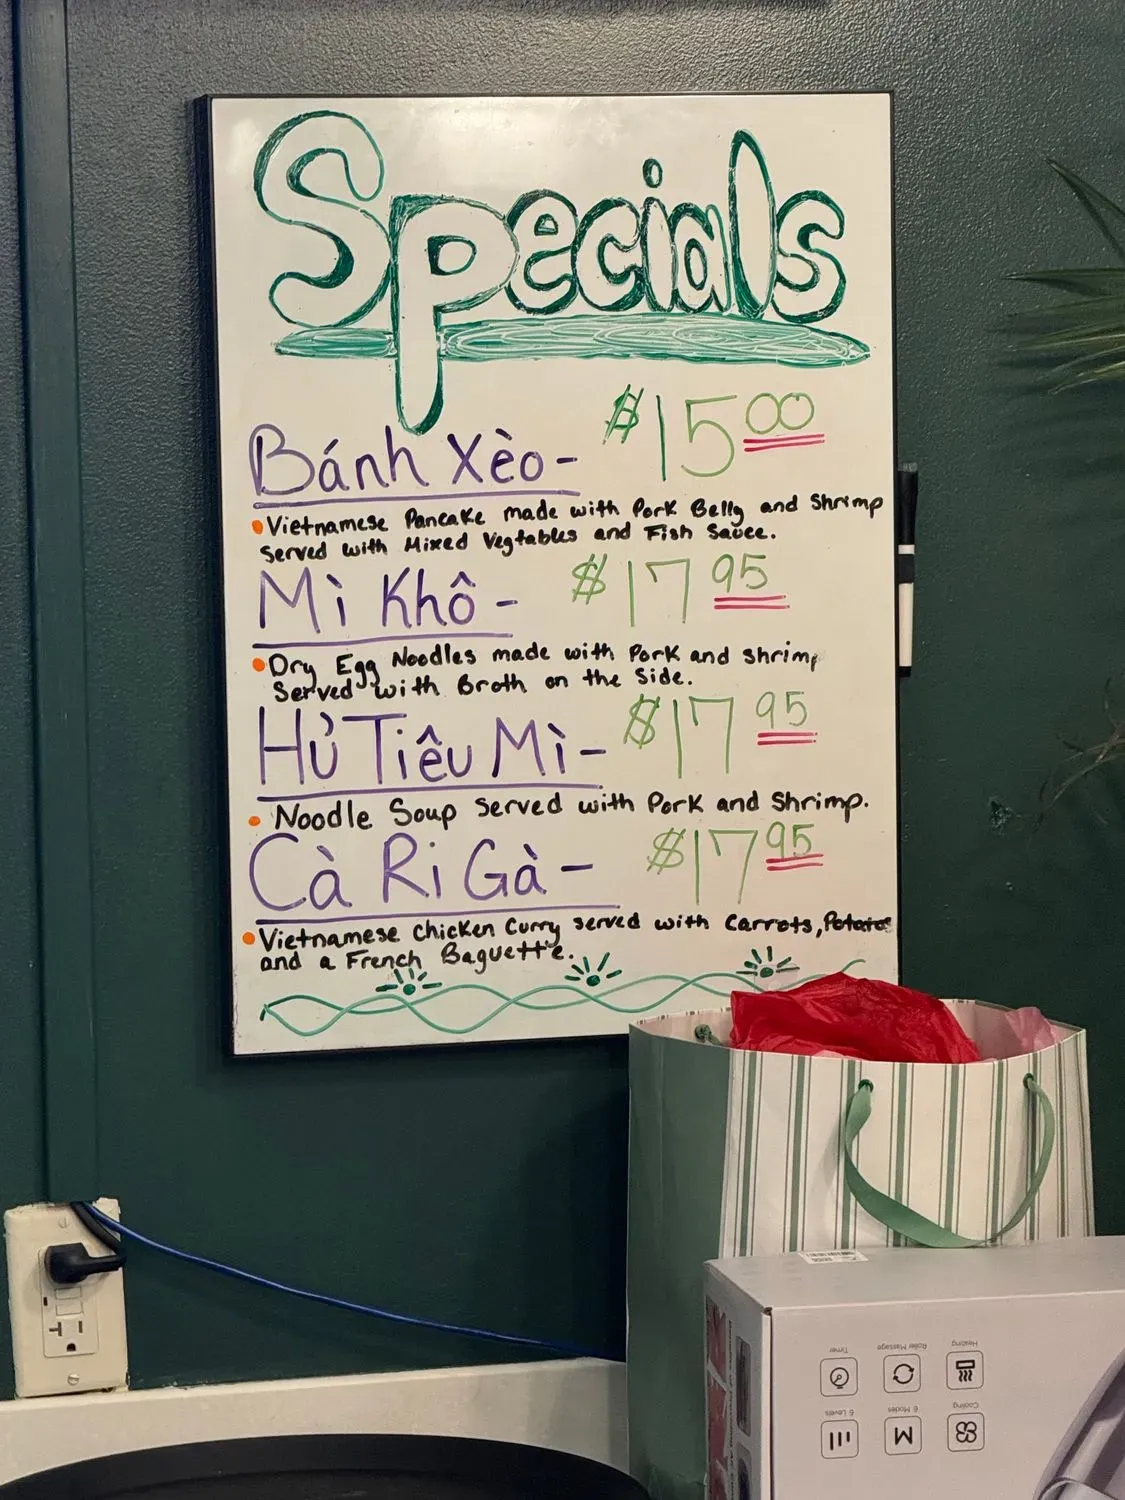 Specials
Bánh Xèo- $15.00
• Vietnamese Pancake made with Pork Belly and Shrimp
served with Mixed Vegtables and Fish Sauce.
Mì Khô - $17 95
• Dry Egg Noodles made with Pork and shrimp
Served with Broth on the Side.
Hủ Tiêu Mì- $17 95
• Noodle Soup Served with Pork and Shrimp.
Cà Ri Gà- $17 95
• Vietnamese Chicken Curry served with Carrots, Potatoes
and a French Baguette.
Timer Roller Massage Heating
6 Levels 6 Modes Cooling
M